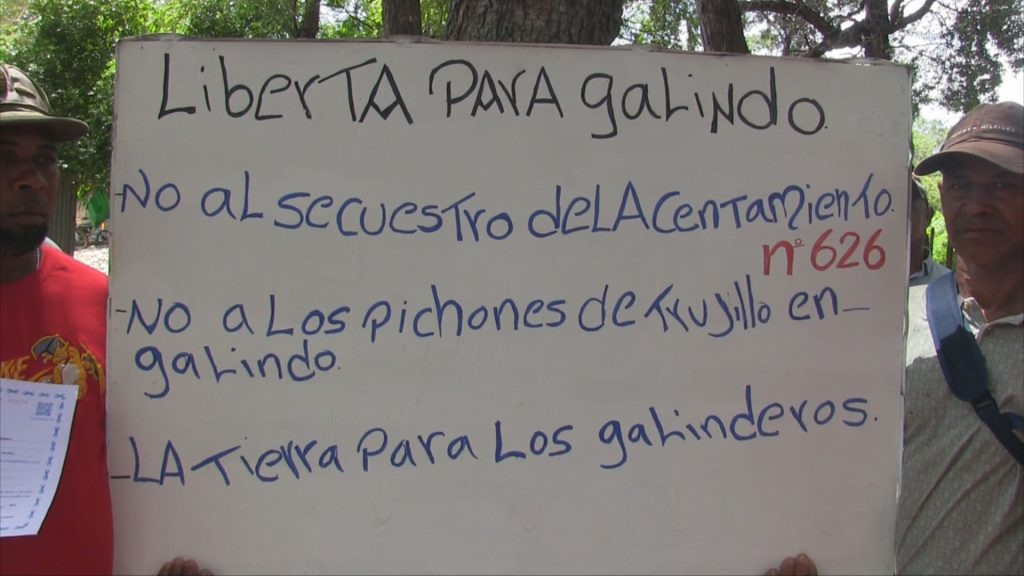 LiberTA PARA gALiNdo.
-No AL SecuesTro deL AcenTAmienTo.
n° 626
-No a Los pichones de Trujillo en-
gaLindo.
-LA Tierra Para Los gaLinderos.